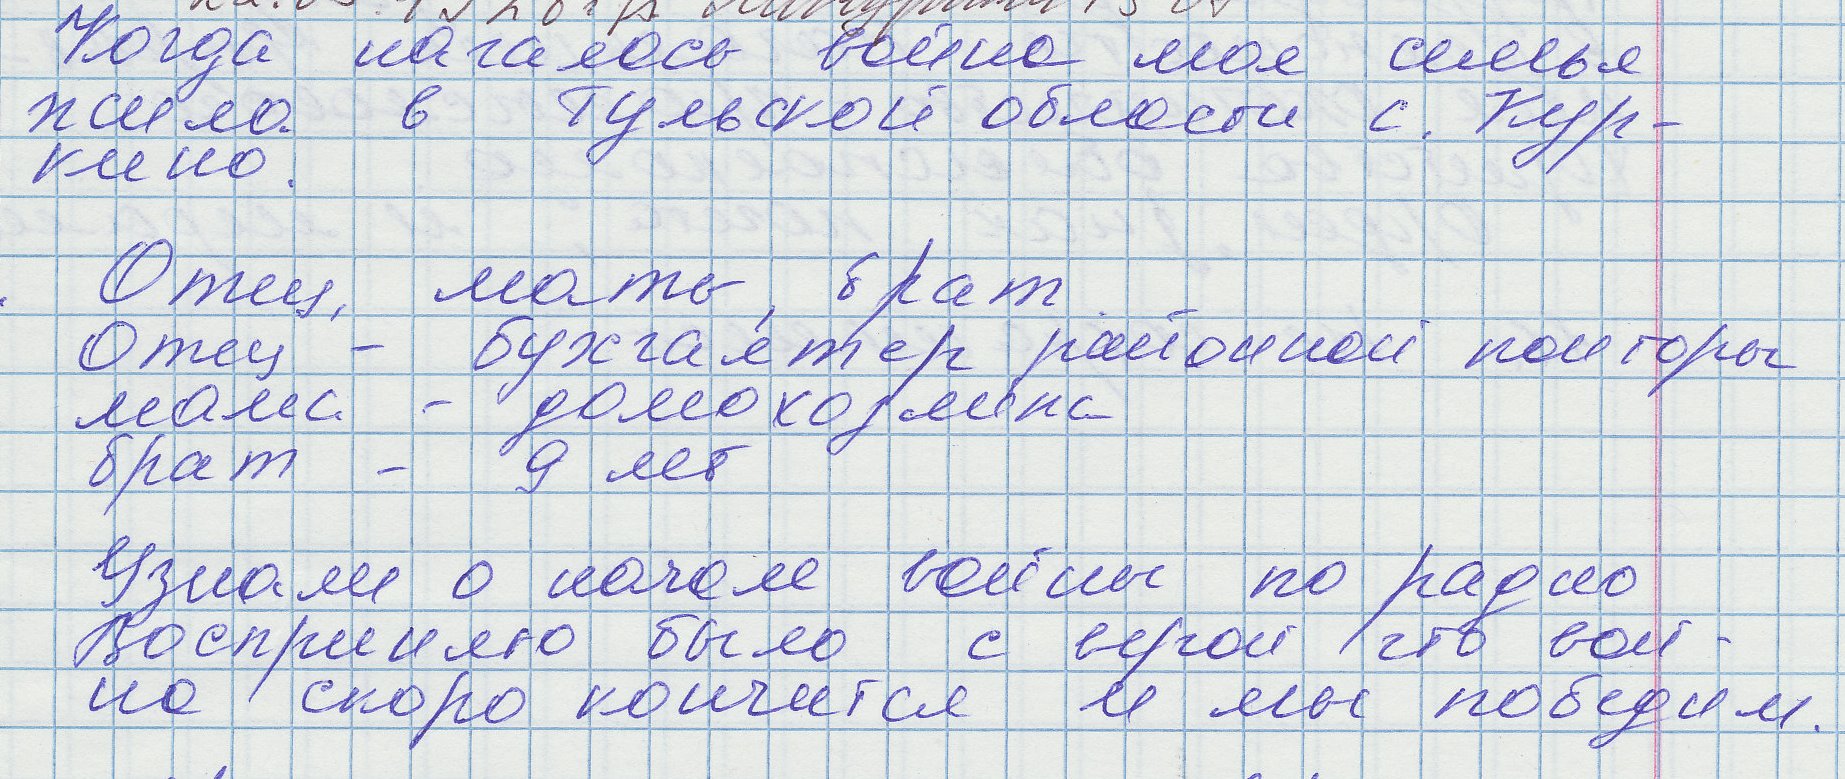 Когда началась война моя семья
жила в Тульской области с. Кур-
кино.
Отец, мать, брат
Отец - бухгалтер районной конторы
мама - домохозяйка
брат - 9 лет
Узнали о начале войны по радио
Воспринято было с верой что вой-
на скоро кончится и мы победим.